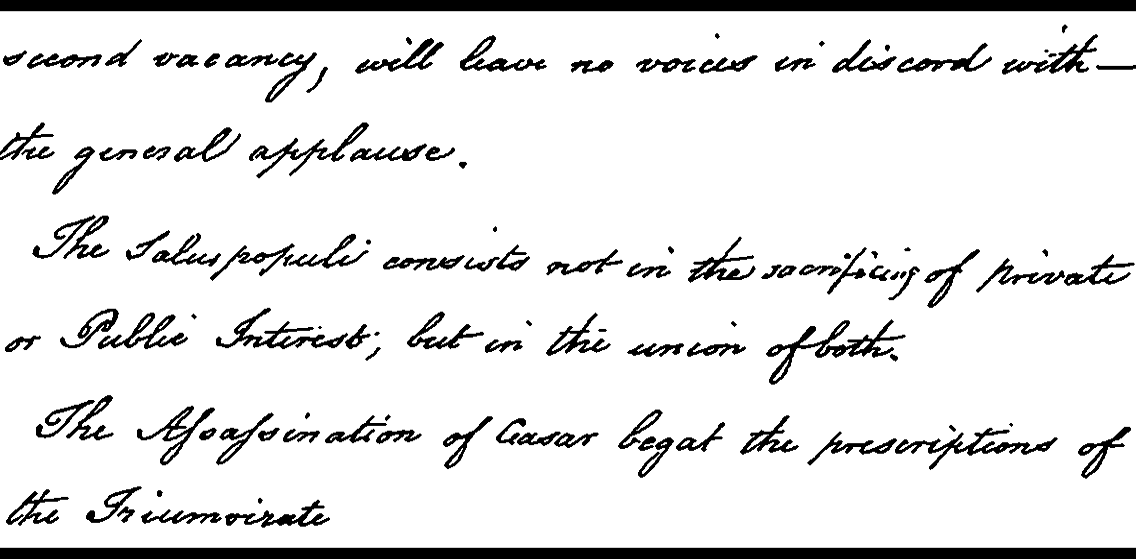 second vacancy, will leave no voices in discord with—
the general applause.
The Salus populi consists not in the sacrificing of private
or Public Interest; but in the union of both.
The Assassination of Ceasar begat the prescriptions of
the Triumvirate